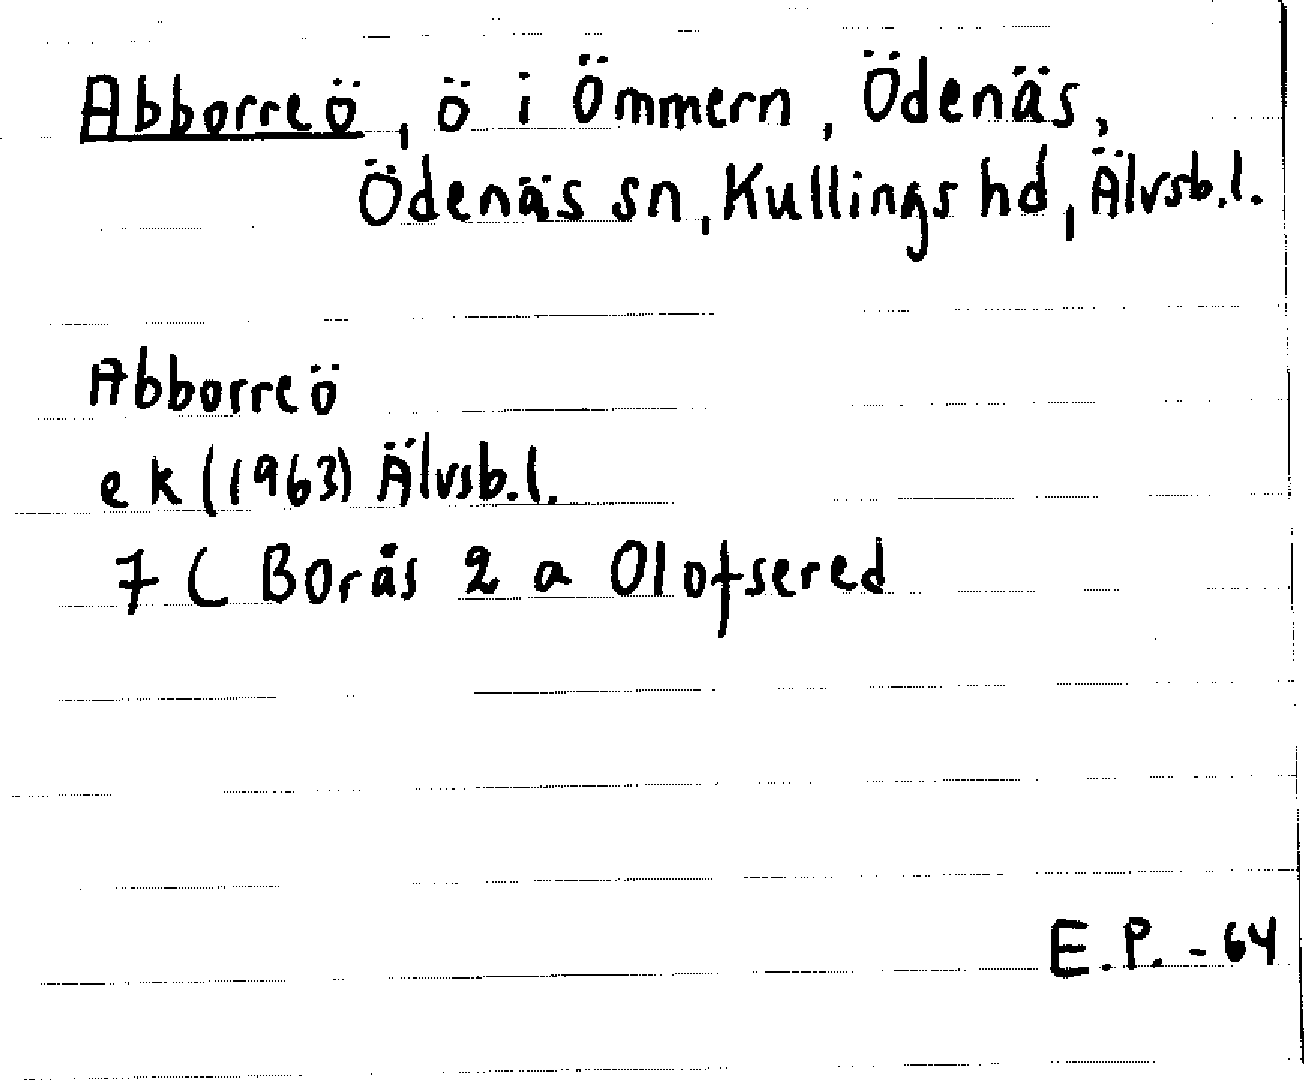 Abborreö, ö i Ömmern, Ödenäs,
Ödenäs sn, Kullings hd, Älvsb.l.
Abborreö
ek (1963) Älvsb.l.
7C Borås 2a Olofsered
E.P. - 64